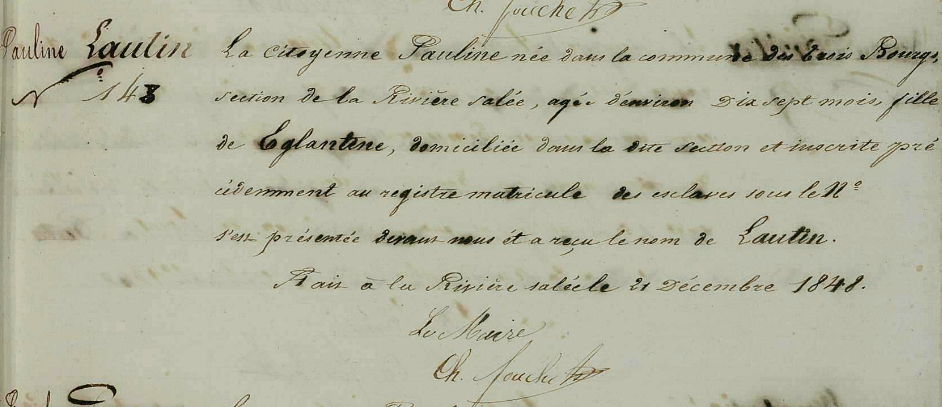 Ch. Fouchet
Pauline Lautin
N° 143
La citoyenne Pauline née dans la commune des trois Bourgs,
section de la Rivière salée, agée d'environ Dix sept mois, fille
de Eglantine, domiciliée dans la dite section et inscrite pré
cédemment au registre matricule des esclaves sous le N°
s'est présentée devant nous et a reçu le nom de Lautin.
Fait à la Rivière salée le 21 Décembre 1848.
Le Maire
Ch. Fouchet